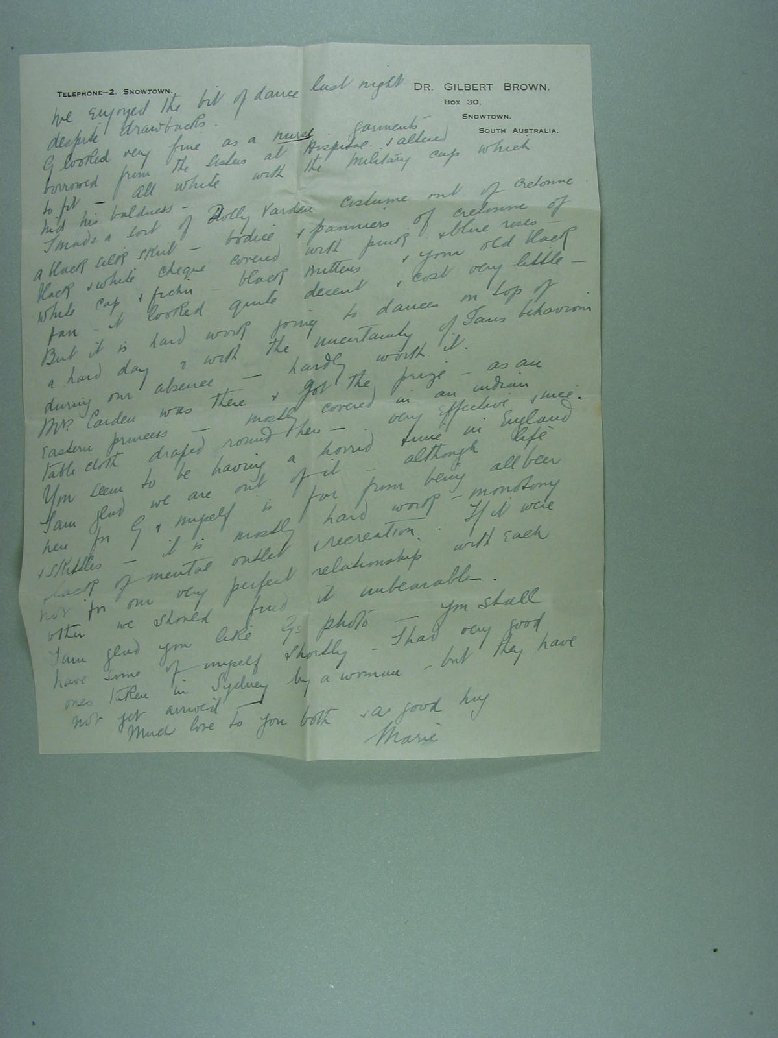 TELEPHONE—2, SNOWTOWN.
DR. GILBERT BROWN,
BOX 30,
SNOWTOWN,
SOUTH AUSTRALIA.
We enjoyed the bit of dance last night
despite drawbacks.
G looked very fine as a nurse garments
borrowed from the ladies at Hospital & altered
to fit — all white with the military cap which
hid his baldness —
I made a sort of Dolly Varden costume out of cretonne
a black silk skirt — bodice & panniers of cretonne of
black & white cheque covered with pink & blue roses —
white cap & fichu — black mittens & your old black
fan — it looked quite decent & cost very little —
But it is hard work going to dances on top of
a hard day & with the uncertainty of Ians behaviour
during our absence — hardly worth it.
Mrs Carden was there & got the prize — as an
Eastern princess — mostly covered in an indian
table cloth draped round her — very effective & nice.
You seem to be having a horrid time in England
I am glad we are out of it — although life
here for G & myself is far from being all beer
& skittles — it is mostly hard work — monotony
& lack of mental outlet & recreation. If it were
not for our very perfect relationship with each
other we should find it unbearable.
I am glad you like Gs photo — you shall
have some of myself shortly — I had very good
ones taken in Sydney by a woman — but they have
not yet arrived
Much love to you both & a good hug
Marie